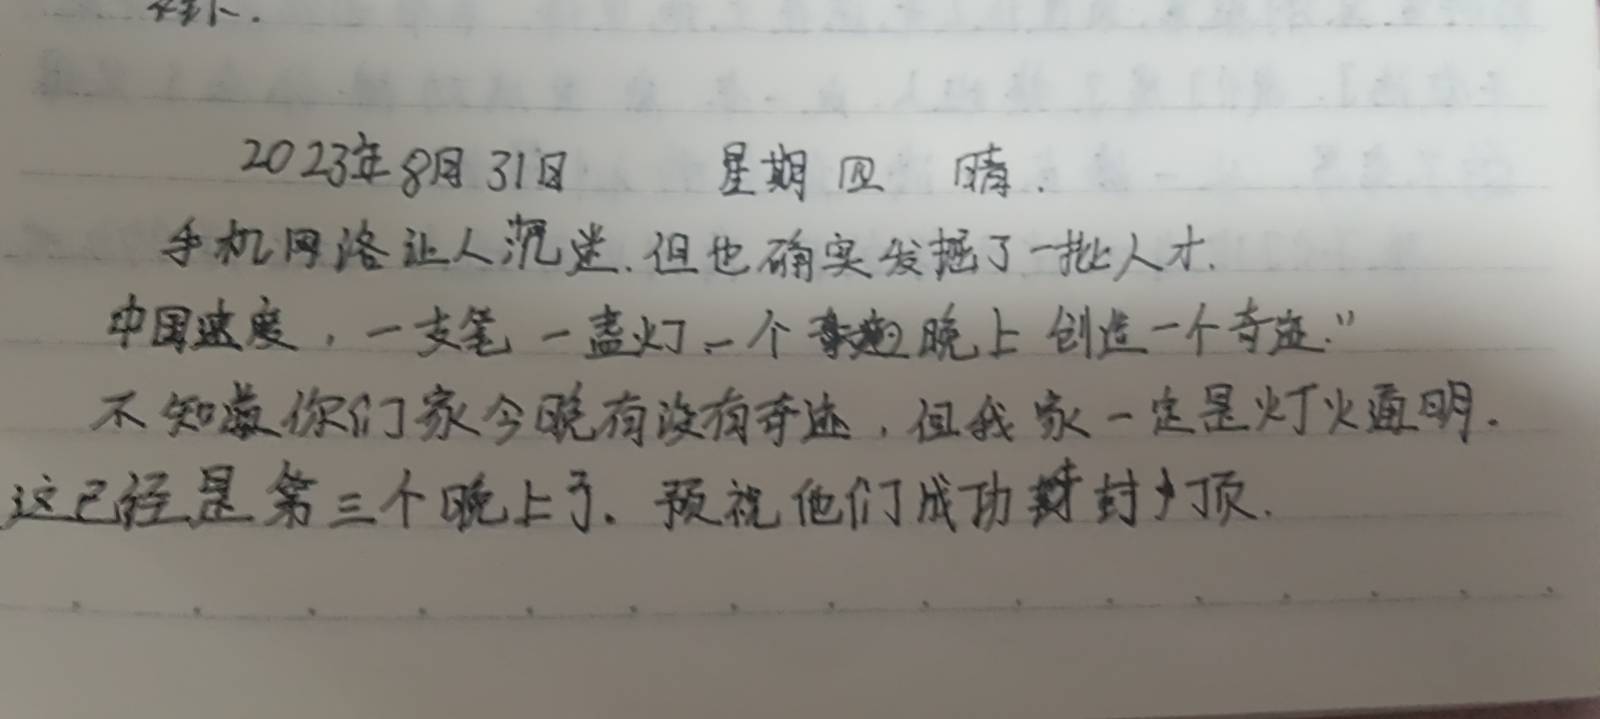 2023年8月31日 星期四 晴.
手机网络让人沉迷.但也确实发掘了一批人才.
中国速度,一支笔一盏灯,一个晚上创造一个奇迹."
不知道你们家今晚有没有奇迹,但我家一定是灯火通明.
这已经是第三个晚上了.预祝他们成功封顶.